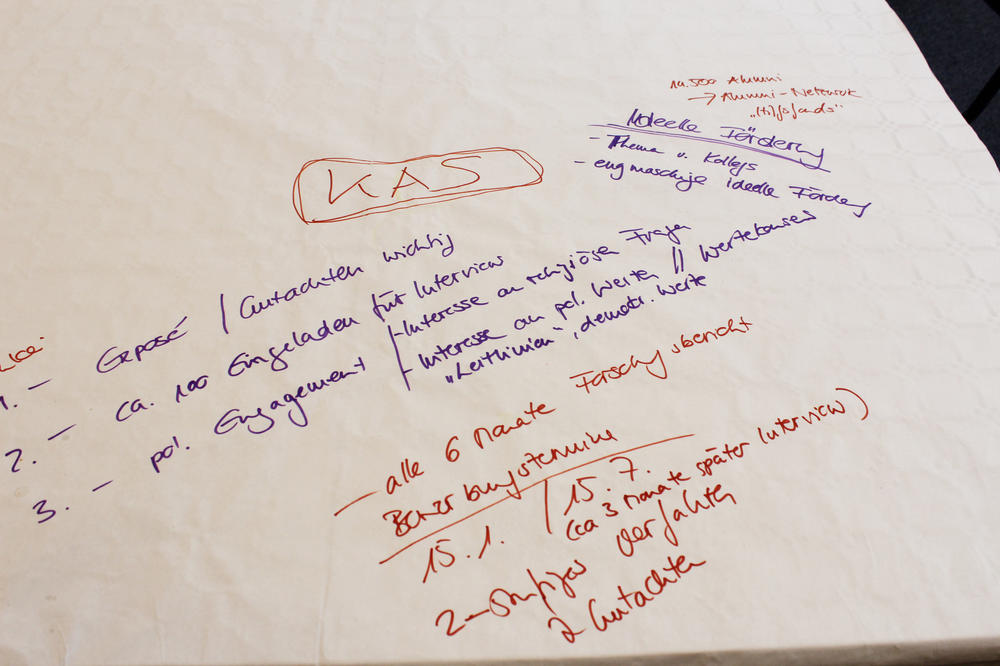 ca. 500 Alumni
→ Alumni-Netzwerk
„Hilfsfonds"
Ideelle Förderung
- Thema v. Kollegs
- engmaschige ideelle Förderung
KAS
1. - Exposé / Gutachten wichtig
2. - ca. 100 Eingeladen für Interview
3. - pol. Engagement
- Interesse an religiösen Fragen
- Interesse an pol. Werten // Wertekonsens
„Leitlinien", demokr. Werte
- alle 6 Monate Forschungsbericht
Bewerbungstermine
15.1. / 15.7.
(ca 3 Monate später Interview)
2-stufiges Verfahren
2 Gutachten